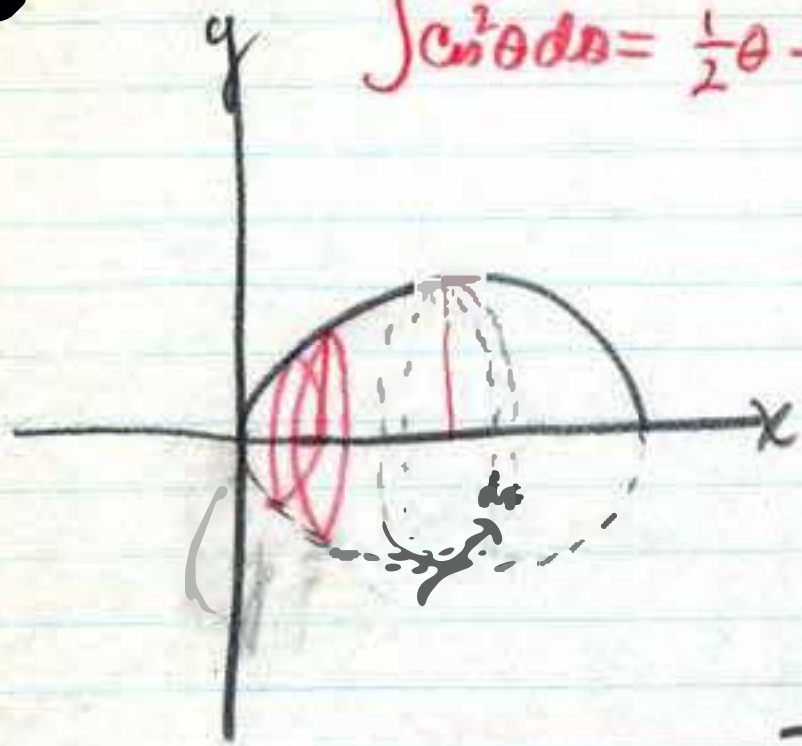 y
∫cos²θdθ = ½θ -
x